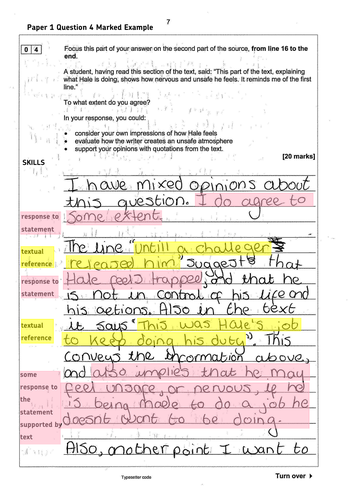 7
Paper 1 Question 4 Marked Example
0 4
Focus this part of your answer on the second part of the source, from line 16 to the
end.
A student, having read this section of the text, said: "This part of the text, explaining
what Hale is doing, shows how nervous and unsafe he feels. It reminds me of the first
line."
To what extent do you agree?
In your response, you could:
• consider your own impressions of how Hale feels
• evaluate how the writer creates an unsafe atmosphere
• support your opinions with quotations from the text.
[20 marks]
SKILLS
I have mixed opinions about
this question. I do agree to
response to
statement
some extent.
The line "untill a challenger
textual
reference
released him" suggests that
response to
statement
Hale feels trapped, and that he
is not in control of his life and
his actions. Also in the text
textual
reference
it says "This was Hale's job
to keep doing his duty". This
conveys the information above,
some
response to
the
statement
supported by
text
and also implies that he may
feel unsafe, or nervous, if he
is being made to do a job he
doesnt want to be doing.
Also, another point I want to
Typesetter code
Turn over ▸